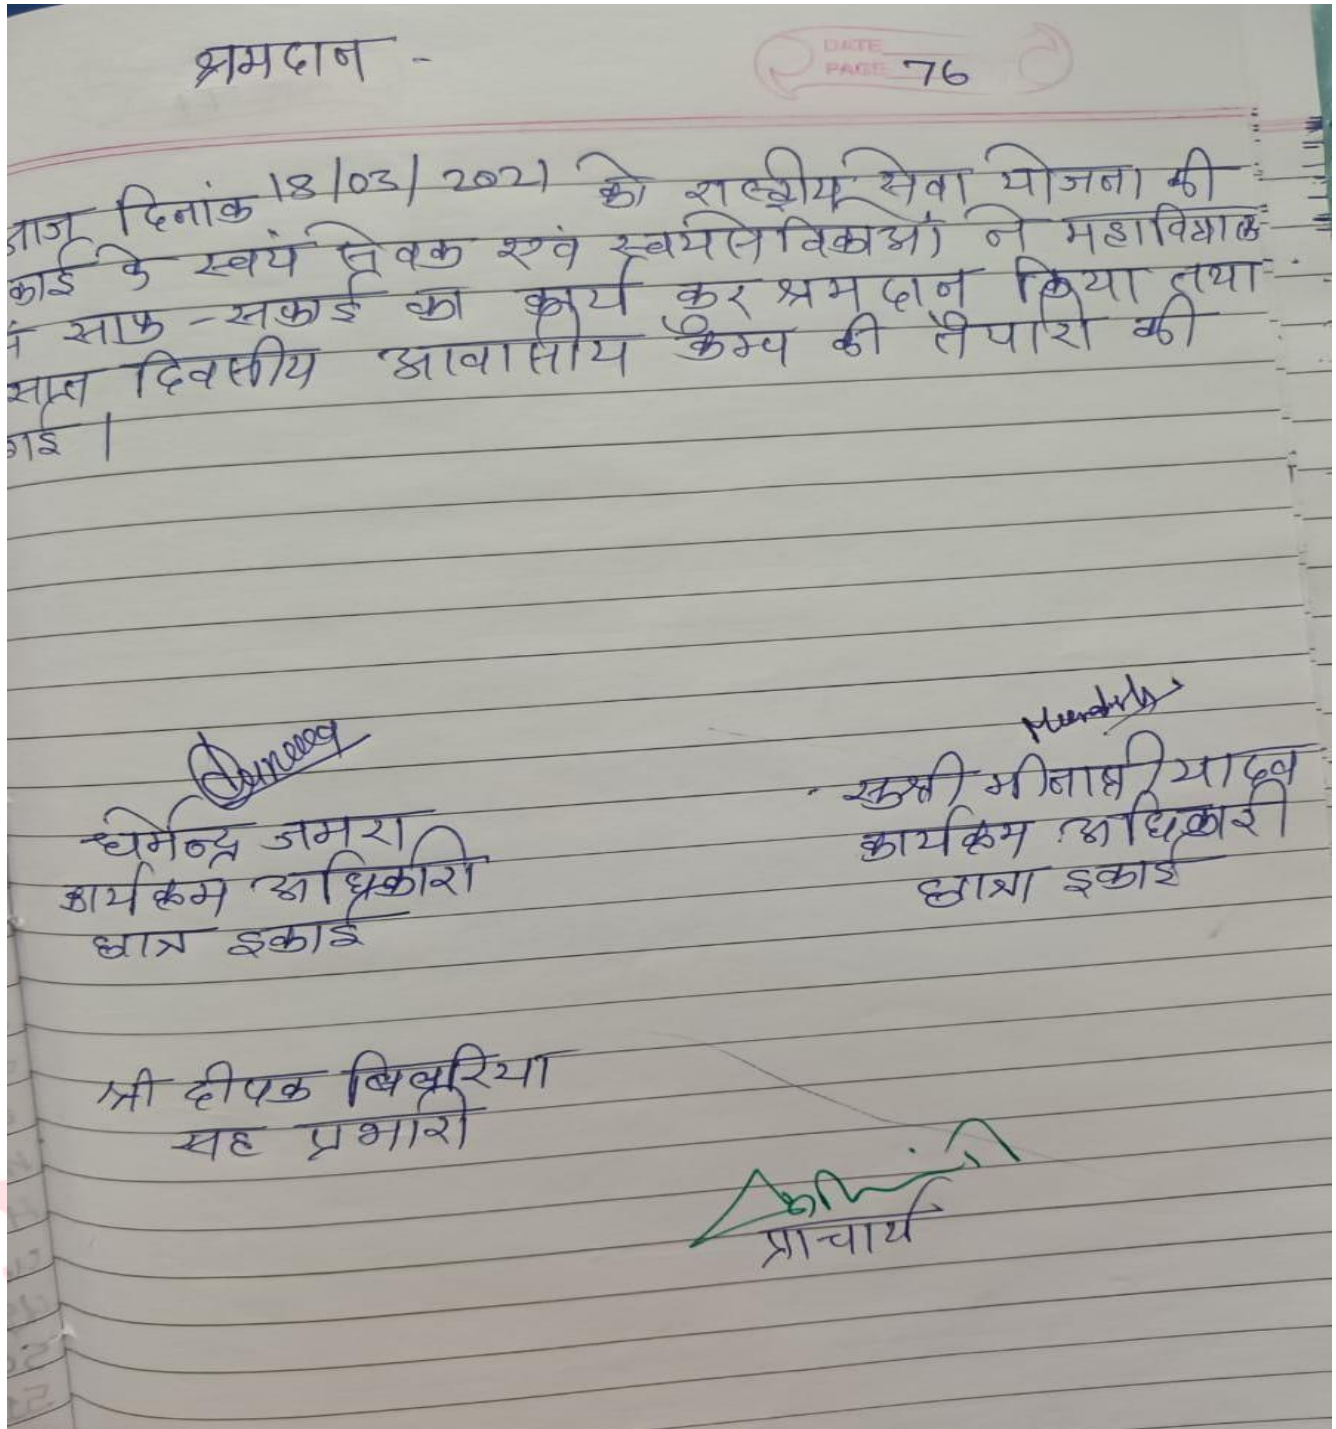 श्रमदान -
DATE
PAGE 76
आज दिनांक 18/03/2021 को राष्ट्रीय सेवा योजना की
काई के स्वयं सेवक एवं स्वयंसेविकाओं ने महाविद्यालय
में साफ-सफाई का कार्य कर श्रमदान किया तथा
सात दिवसीय आवासीय कैम्प की तैयारी की
गई |
धर्मेन्द्र जमरा
सुश्री मीनाक्षी यादव
कार्यक्रम अधिकारी
कार्यक्रम अधिकारी
छात्र इकाई
छात्रा इकाई
श्री दीपक
सह प्रभारी
प्राचार्य